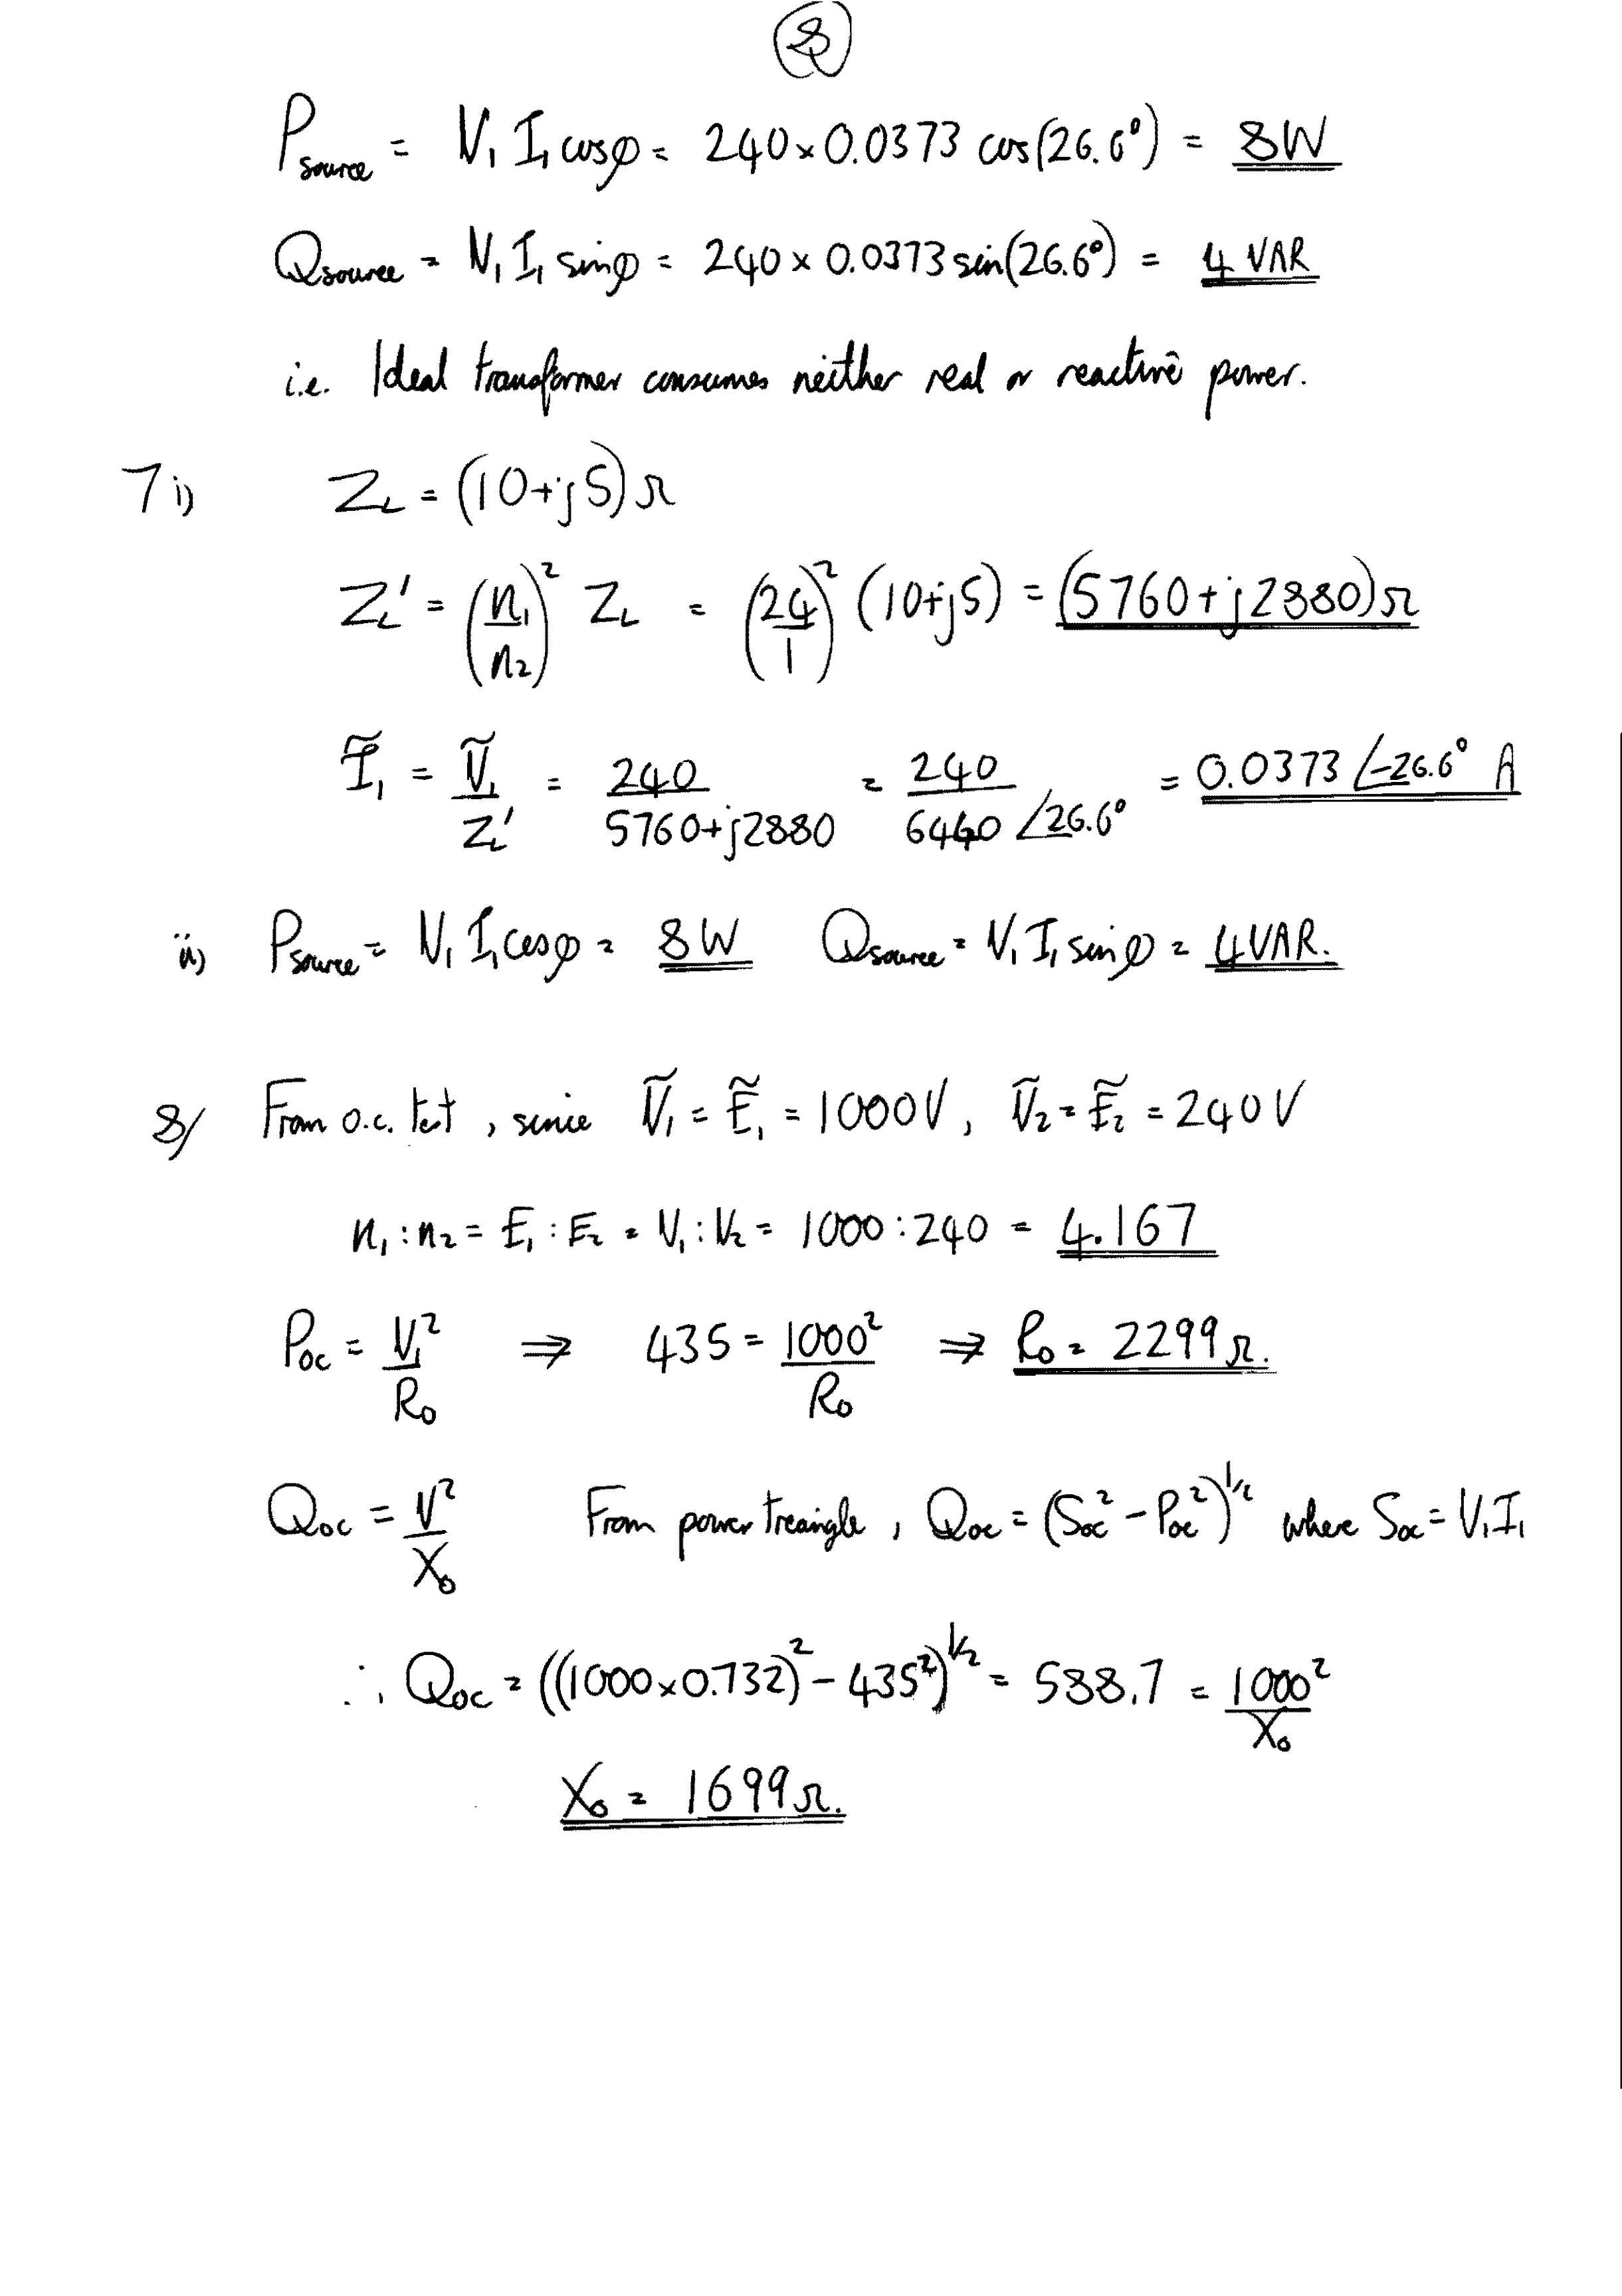 8
P_source = V₁ I₁ cosφ = 240 × 0.0373 cos(26.6°) = 8W
Q_source = V₁ I₁ sinφ = 240 × 0.0373 sin(26.6°) = 4 VAR
i.e. Ideal transformer consumes neither real or reactive power.
7 i) Z_L = (10+j5)Ω
Z_L' = (n₁/n₂)² Z_L = (24/1)² (10+j5) = (5760+j2880)Ω
Ĩ₁ = Ṽ₁/Z_L' = 240/(5760+j2880) = 240/(6440 ∠26.6°) = 0.0373 ∠-26.6° A
ii) P_source = V₁ I₁ cosφ = 8W Q_source = V₁ I₁ sinφ = 4VAR.
8/ From o.c. test, since Ṽ₁ = Ẽ₁ = 1000V, Ṽ₂ = Ẽ₂ = 240V
n₁:n₂ = E₁:E₂ = V₁:V₂ = 1000:240 = 4.167
P_oc = V₁²/R₀ ⇒ 435 = 1000²/R₀ ⇒ R₀ = 2299Ω.
Q_oc = V²/X₀ From power triangle, Q_oc = (S_oc² - P_oc²)^½ where S_oc = V₁I₁
∴ Q_oc = ((1000×0.732)² - 435²)^½ = 588.7 = 1000²/X₀
X₀ = 1699Ω.